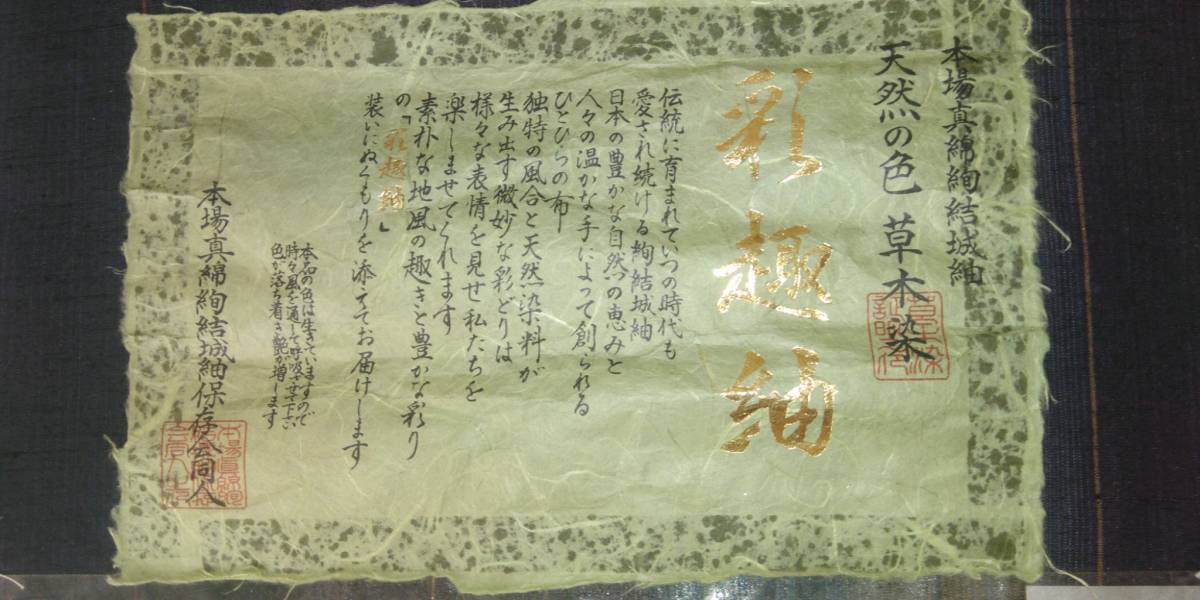 本場真綿絢結城紬
天然の色 草木染
彩趣紬
伝統に育まれていつの時代も
愛され続ける絢結城紬
日本の豊かな自然の恵みと
人々の温かな手によって創られる
ひとひらの布
独特の風合と天然染料が
生み出す微妙な彩どりは
様々な表情を見せ私たちを
楽しませてくれます
素朴な地風の趣きと豊かな彩り
の「彩趣紬」
装いにぬくもりを添えてお届けします
本品の色は生きていますので
時々風を通して呼吸させて下さい
色が落ち着き艶が増します
本場真綿絢結城紬保存会同人